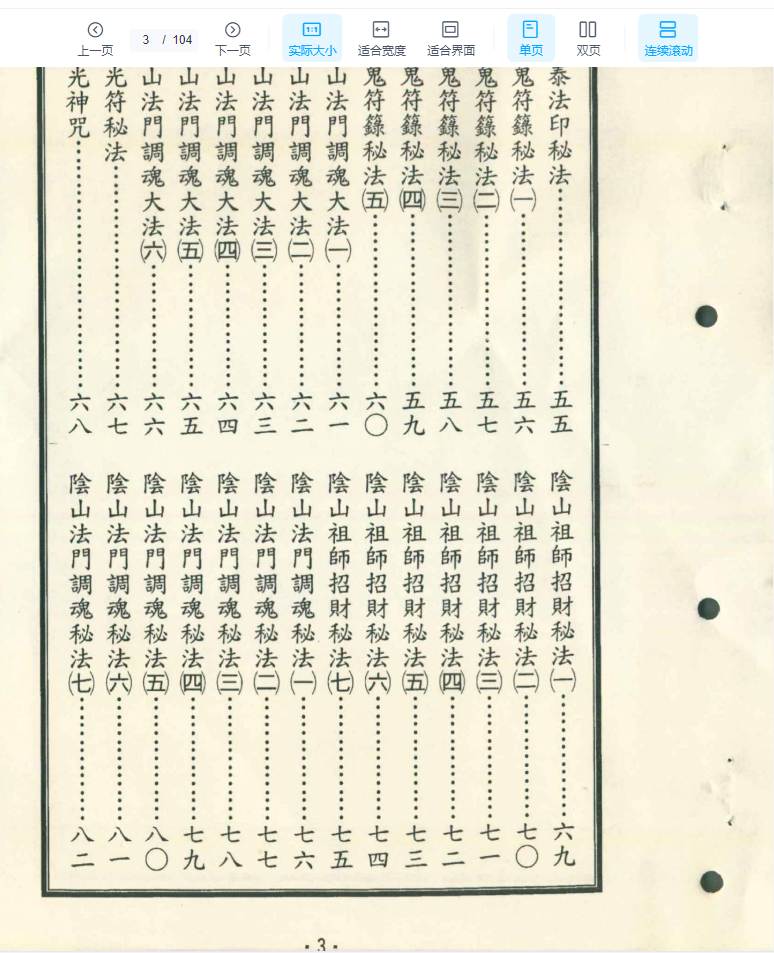 上一页
3 / 104
下一页
1:1
实际大小
适合宽度
适合界面
单页
双页
连续滚动
泰法印秘法……五五
鬼符籙秘法㈠……五六
鬼符籙秘法㈡……五七
鬼符籙秘法㈢……五八
鬼符籙秘法㈣……五九
鬼符籙秘法㈤……六〇
山法門調魂大法㈠……六一
山法門調魂大法㈡……六二
山法門調魂大法㈢……六三
山法門調魂大法㈣……六四
山法門調魂大法㈤……六五
山法門調魂大法㈥……六六
光符秘法……六七
光神咒……六八
陰山祖師招財秘法㈠……六九
陰山祖師招財秘法㈡……七〇
陰山祖師招財秘法㈢……七一
陰山祖師招財秘法㈣……七二
陰山祖師招財秘法㈤……七三
陰山祖師招財秘法㈥……七四
陰山祖師招財秘法㈦……七五
陰山法門調魂秘法㈠……七六
陰山法門調魂秘法㈡……七七
陰山法門調魂秘法㈢……七八
陰山法門調魂秘法㈣……七九
陰山法門調魂秘法㈤……八〇
陰山法門調魂秘法㈥……八一
陰山法門調魂秘法㈦……八二
·3·